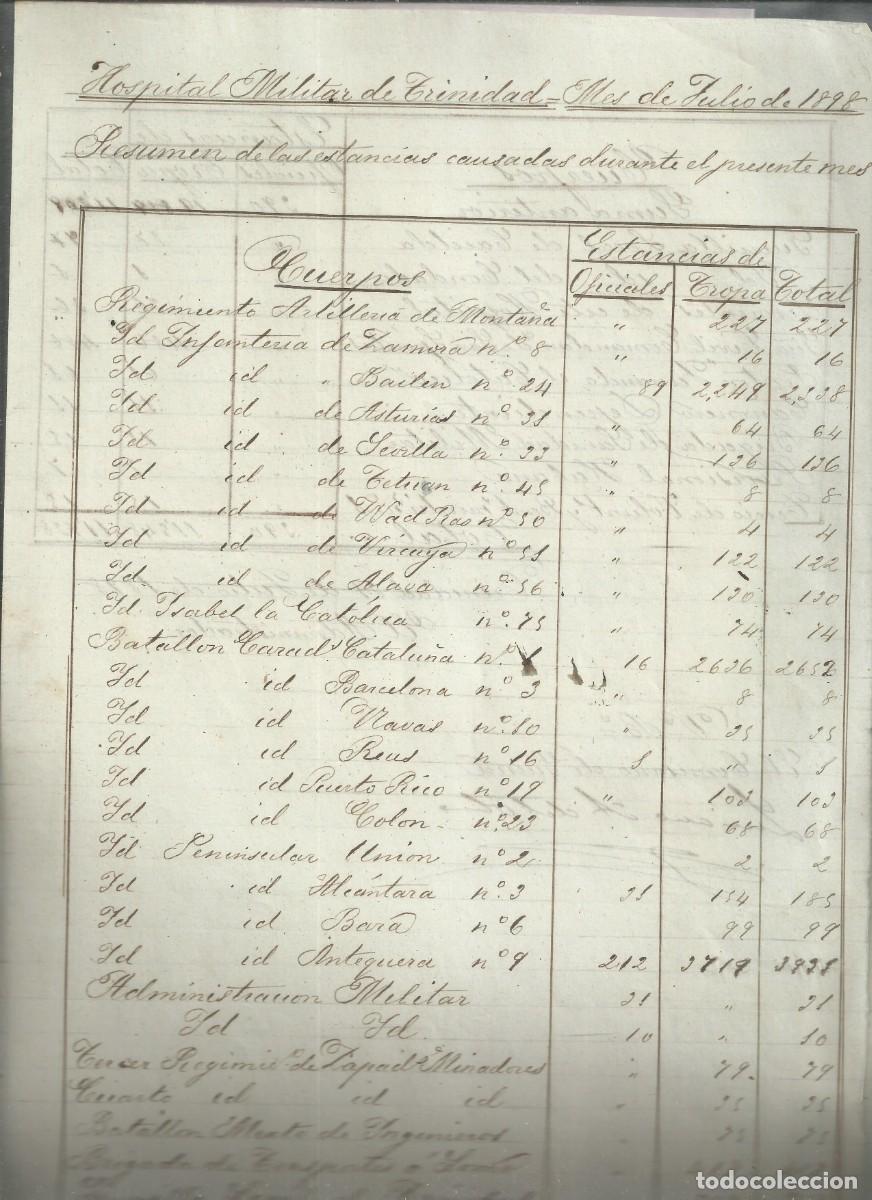 Hospital Militar de Trinidad = Mes de Julio de 1898
Resumen de las estancias causadas durante el presente mes
Cuerpos
Estancias de
Oficiales Tropa Total
Regimiento Artilleria de Montaña " 227 227
Id Infanteria de Zamora nº 8 " 16 16
Id id " Bailen nº 24 89 2,249 2,338
Id id de Asturias nº 31 " 64 64
Id id de Sevilla nº 33 " 136 136
Id id de Tetuan nº 45 " 8 8
Id id de Wad Ras nº 50 " 4 4
Id id de Vizcaya nº 51 " 122 122
Id id de Alava nº 56 " 130 130
Id. Isabel la Catolica nº 75 " 74 74
Batallon Cazads Cataluña nº 1 16 2636 2652
Id id Barcelona nº 3 " 8 8
Id id Navas nº 10 " 35 35
Id id Reus nº 16 1 " 1
Id id Puerto Rico nº 19 " 103 103
Id id Colon nº 23 68 68
Id Peninsular Union nº 2 2 2
Id id Alcántara nº 3 31 154 185
Id id Bara nº 6 99 99
Id id Antequera nº 9 212 3719 3931
Administracion Militar 31 " 31
Id Id. 10 " 10
Tercer Regimto de Zapads Minadores " 79 79
Cuarto id id id " 35 35
Batallon Mixto de Ingenieros " 75 75
Brigada de Trasportes á
todocoleccion